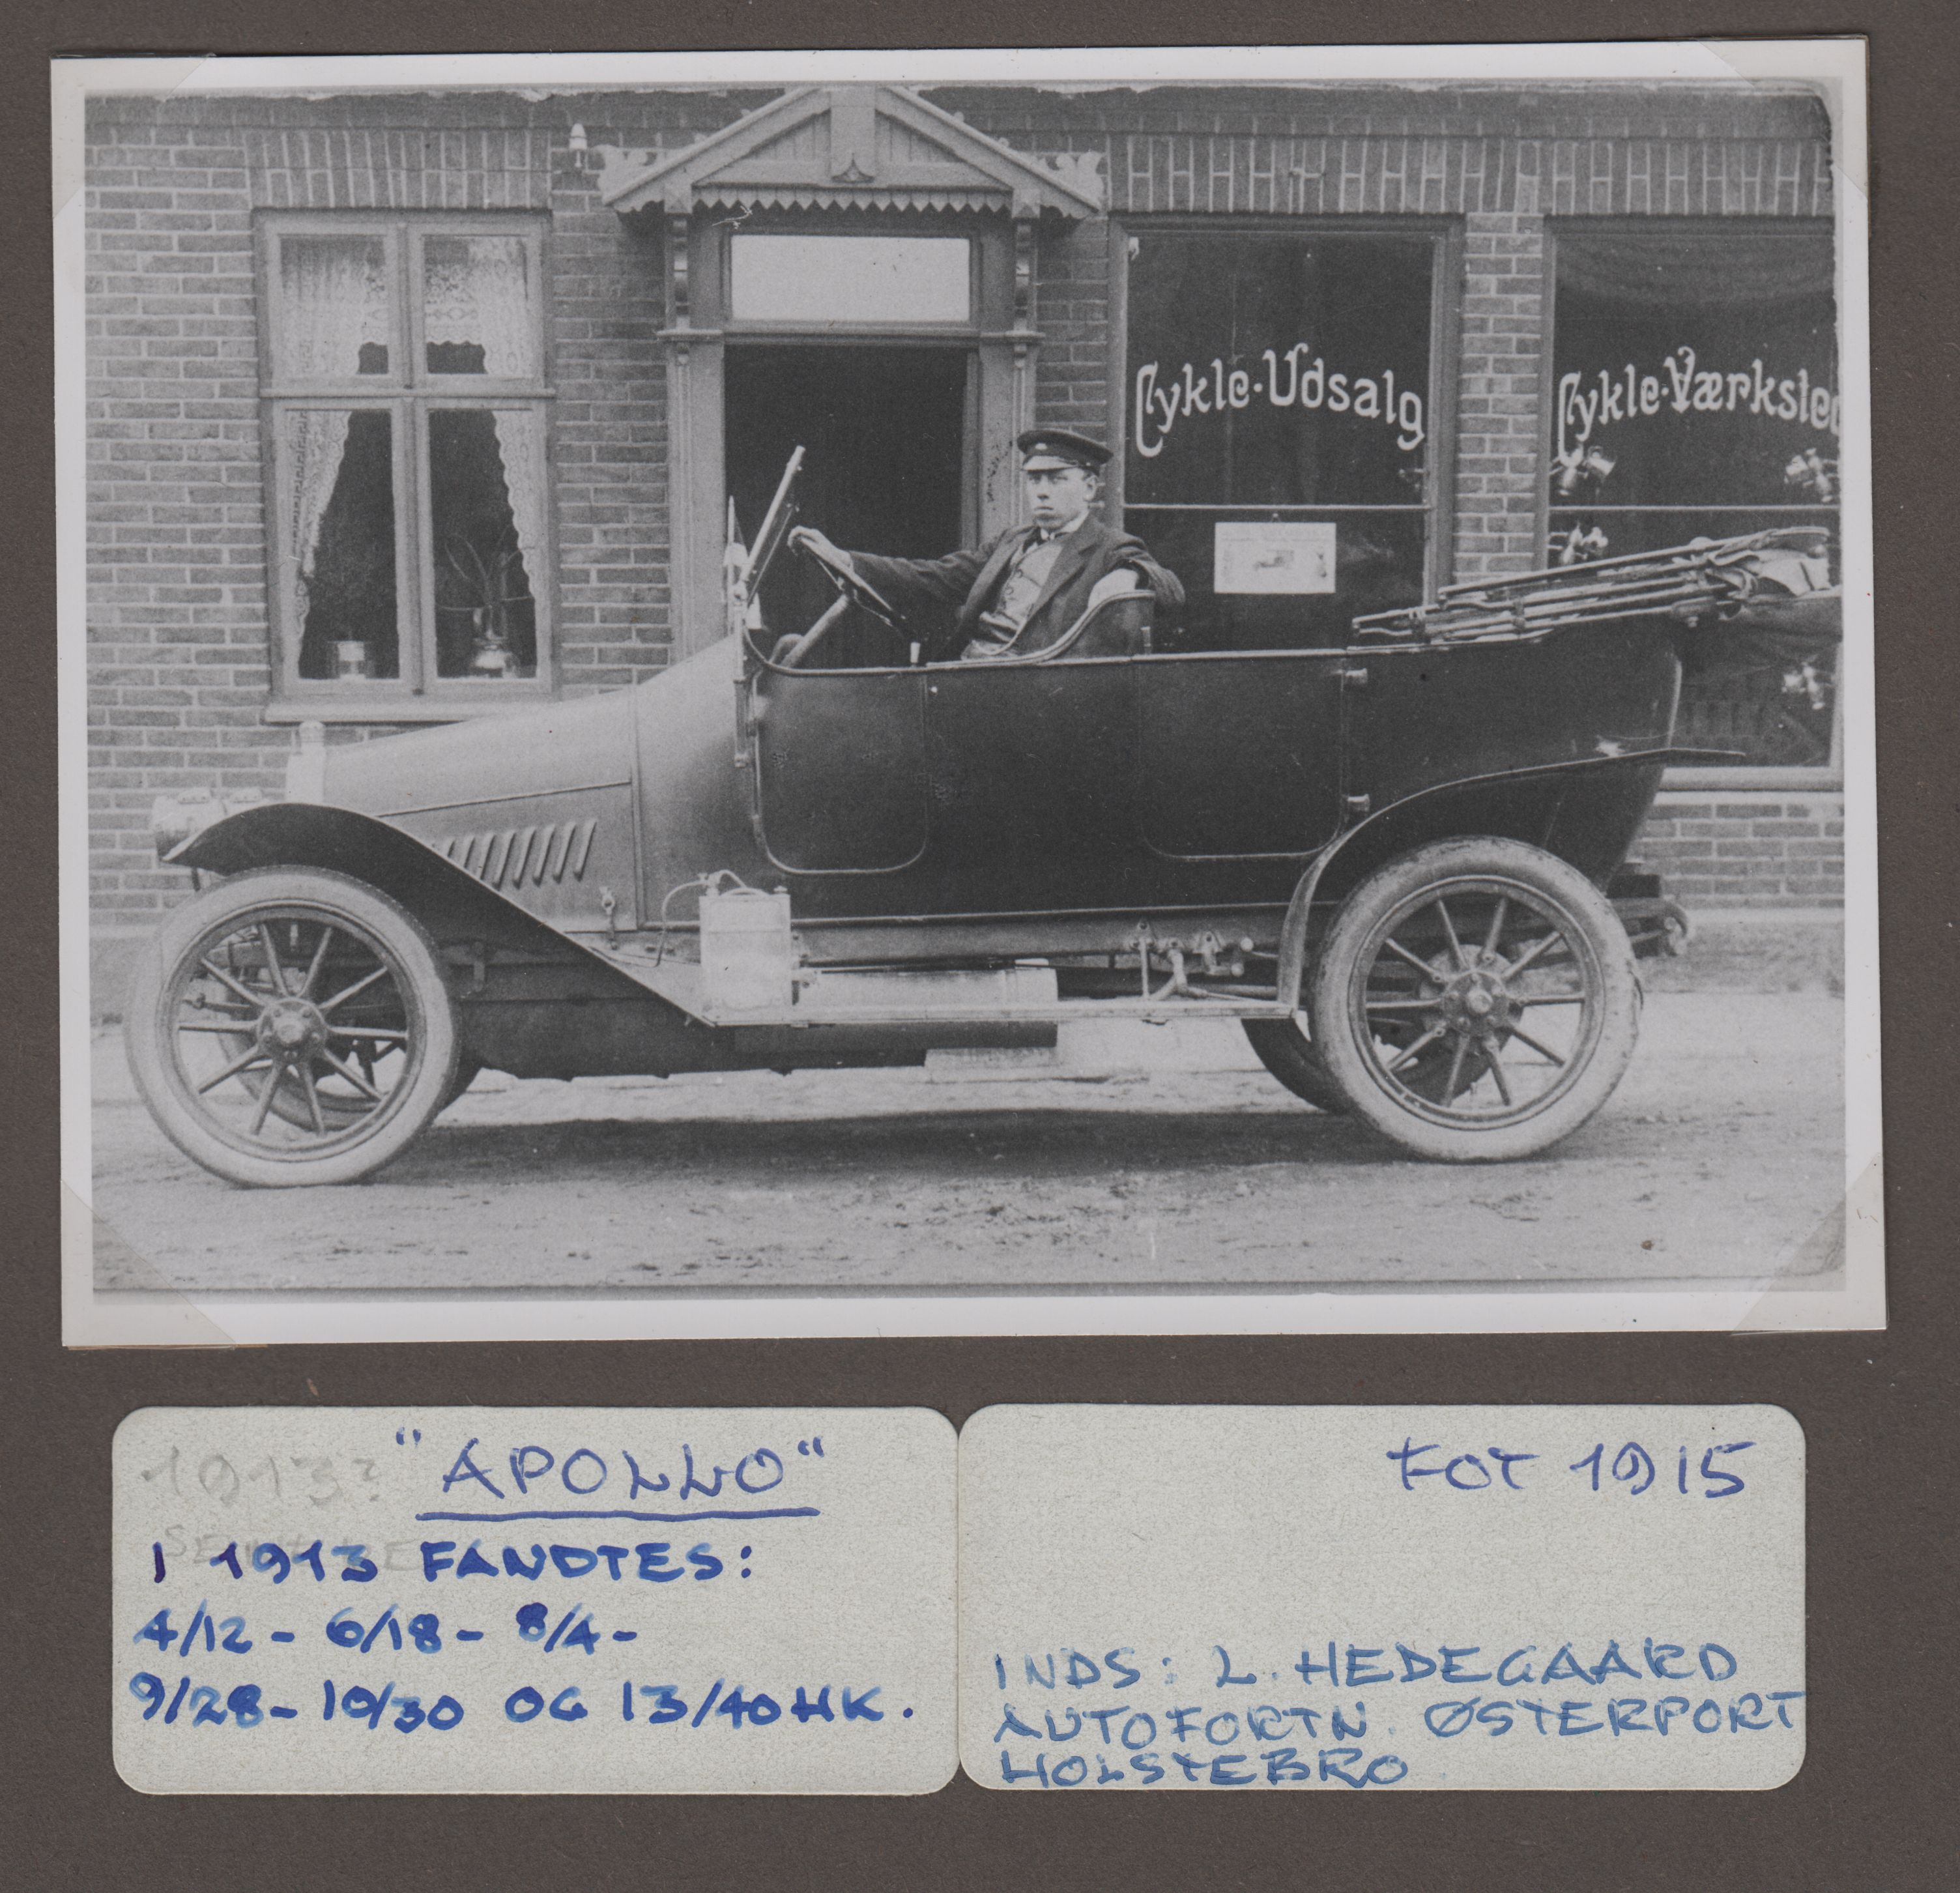 Cykle·Udsalg
Cykle·Værksted
1913? "APOLLO"
I 1913 FANDTES:
4/12 - 6/18 - 8/4 -
9/28 - 10/30 OG 13/40 HK.
FOT 1915
INDS: L. HEDEGAARD
AUTOFORTN. ØSTERPORT
HOLSTEBRO